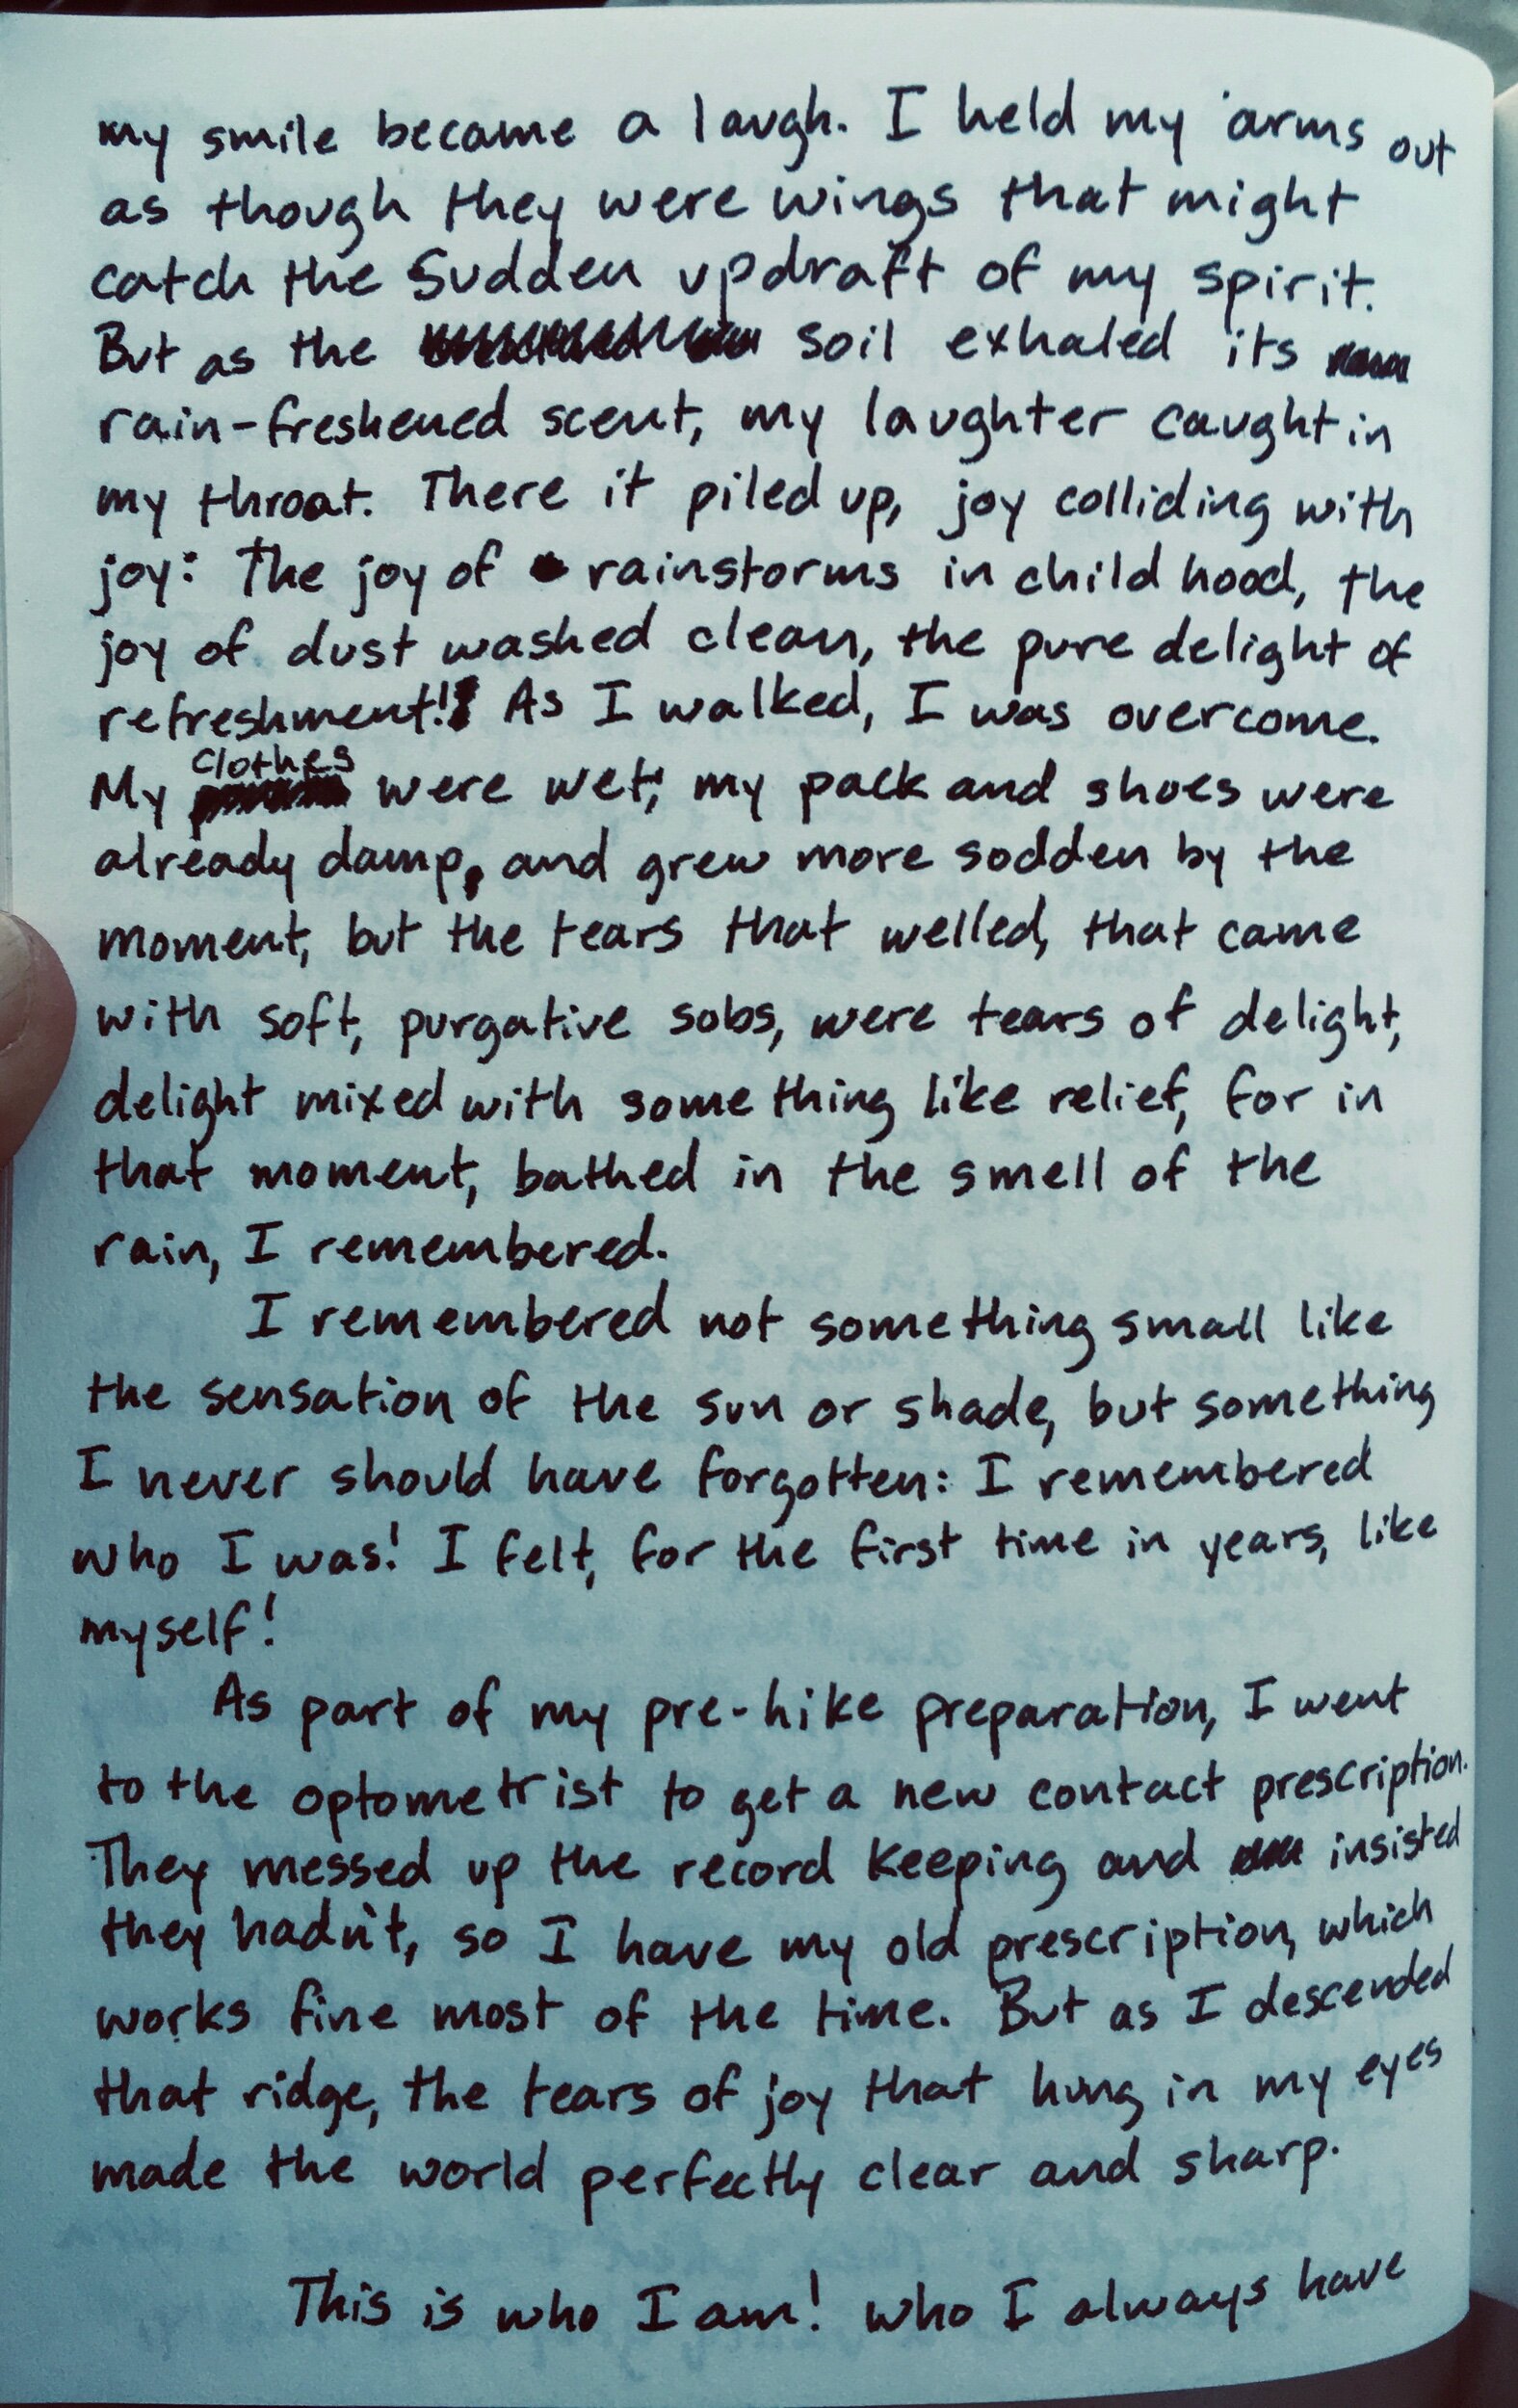 my smile became a laugh. I held my arms out
as though they were wings that might
catch the sudden updraft of my spirit.
But as the soil exhaled its
rain-freshened scent, my laughter caught in
my throat. There it piled up, joy colliding with
joy: The joy of rainstorms in childhood, the
joy of dust washed clean, the pure delight of
refreshment! As I walked, I was overcome.
My clothes were wet; my pack and shoes were
already damp, and grew more sodden by the
moment, but the tears that welled, that came
with soft, purgative sobs, were tears of delight,
delight mixed with something like relief, for in
that moment, bathed in the smell of the
rain, I remembered.
I remembered not something small like
the sensation of the sun or shade, but something
I never should have forgotten: I remembered
who I was! I felt, for the first time in years, like
myself!
As part of my pre-hike preparation, I went
to the optometrist to get a new contact prescription.
They messed up the record keeping and insisted
they hadn't, so I have my old prescription, which
works fine most of the time. But as I descended
that ridge, the tears of joy that hung in my eyes
made the world perfectly clear and sharp.
This is who I am! who I always have